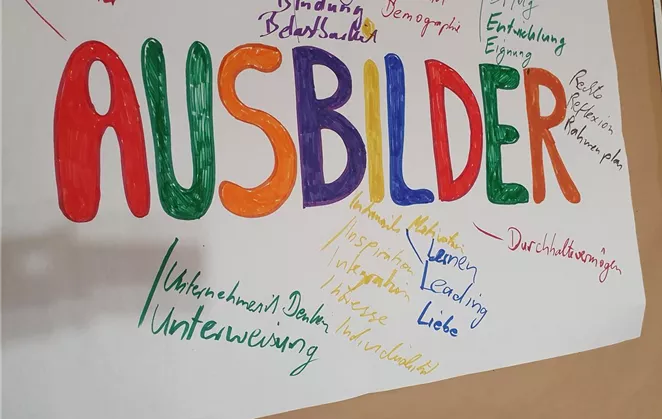 Bindung
Belastbarkeit
Demographie
Entwicklung
Eignung
AUSBILDER
Rechte
Reflexion
Rahmenplan
Durchhaltevermögen
Motivation
Inspiration
Integration
Interesse
Lernen
Leading
Liebe
Denken
Unterweisung